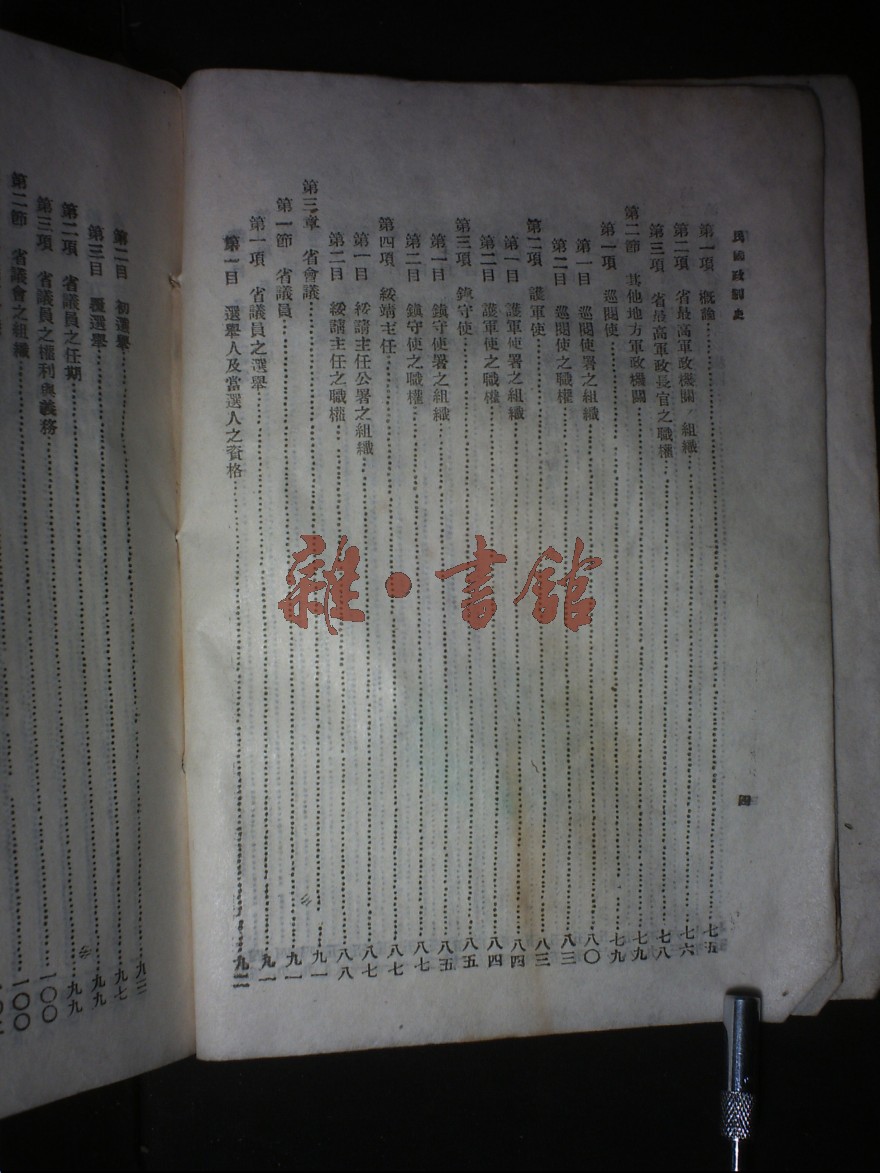 民國政制史
四
第一項 概論 七五
第二項 省最高軍政機關 組織 七六
第三項 省最高軍政長官之職權 七八
第二節 其他地方軍政機關 七九
第一項 巡閱使 七九
第一目 巡閱使署之組織 八〇
第二目 巡閱使之職權 八三
第二項 護軍使 八三
第一目 護軍使署之組織 八四
第二目 護軍使之職權 八四
第三項 鎮守使 八五
第一目 鎮守使署之組織 八五
第二目 鎮守使之職權 八七
第四項 綏靖主任 八七
第一目 綏靖主任公署之組織 八七
第二目 綏靖主任之職權 八八
第三章 省會議 九一
第一節 省議員 九一
第一項 省議員之選舉 九一
第一目 選舉人及當選人之資格 九二
第二目 初選舉
第三目 覆選舉 九七
第二項 省議員之任期 九九
第三項 省議員之權利與義務 一〇〇
第二節 省議會之組織 一〇〇
雜·書館